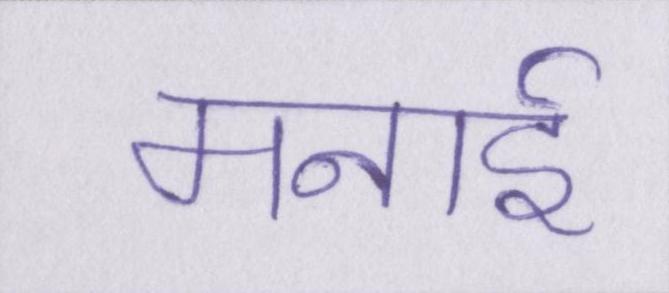 मनाई